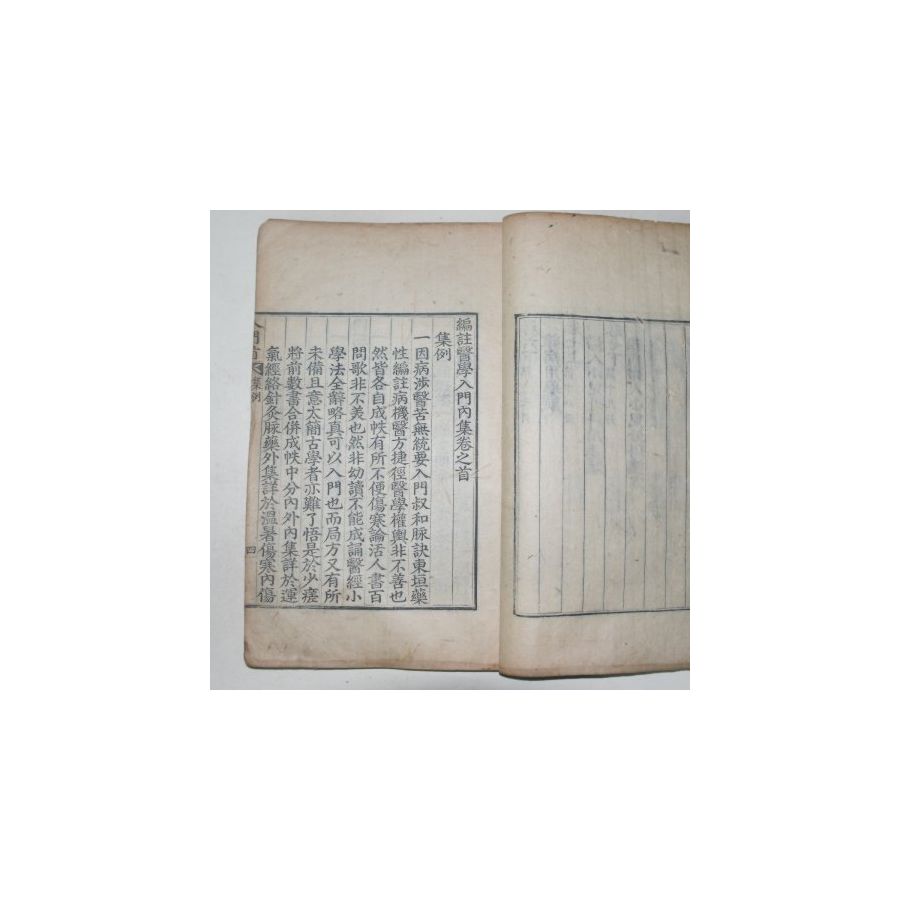 編註醫學入門內集卷之首
集例
一因病涉醫苦無統要入門叔和脉訣東垣藥
性編註病機醫方捷徑醫學權輿非不善也
然皆各自成帙有所不便傷寒論活人書百
問歌非不美也然非幼讀不能成誦醫經小
學法全辭略真可以入門也而局方又有所
未備且意太簡古學者亦難了悟是於少瘥
將前數書合併成帙中分內外內集詳於運
氣經絡針灸脉藥外集詳於溫暑傷寒內傷
入門首 集例
四